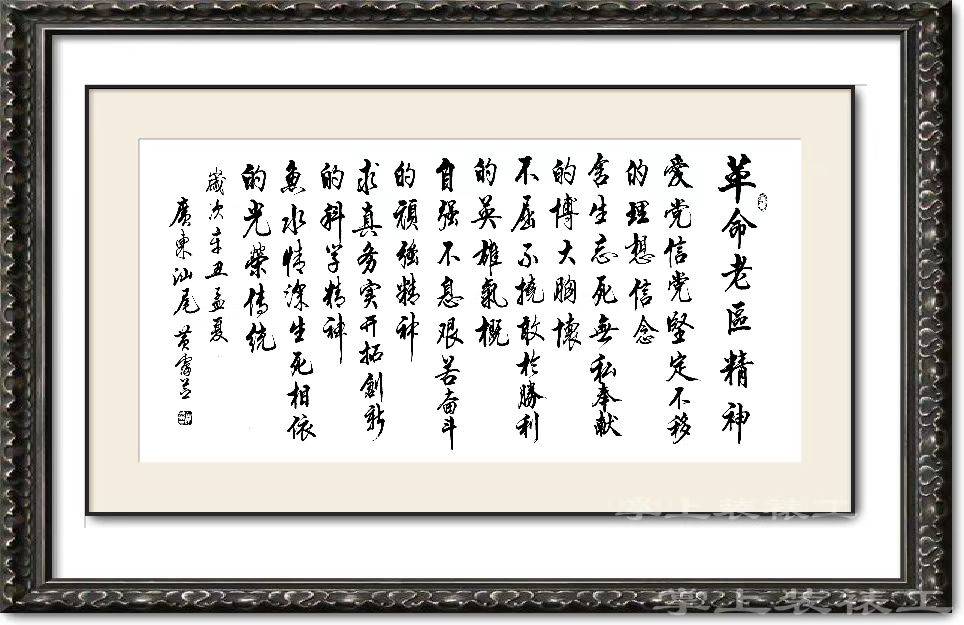 革命老區精神
愛党信党堅定不移
的理想信念
舍生忘死無私奉献
的博大胸懷
不屈不撓敢於勝利
的英雄氣概
自强不息艰苦奋斗
的頑強精神
求真务实开拓創新
的科学精神
鱼水情深生死相依
的光榮传统
歲次辛丑孟夏
廣東汕尾黄
掌上装裱工
掌上装裱工